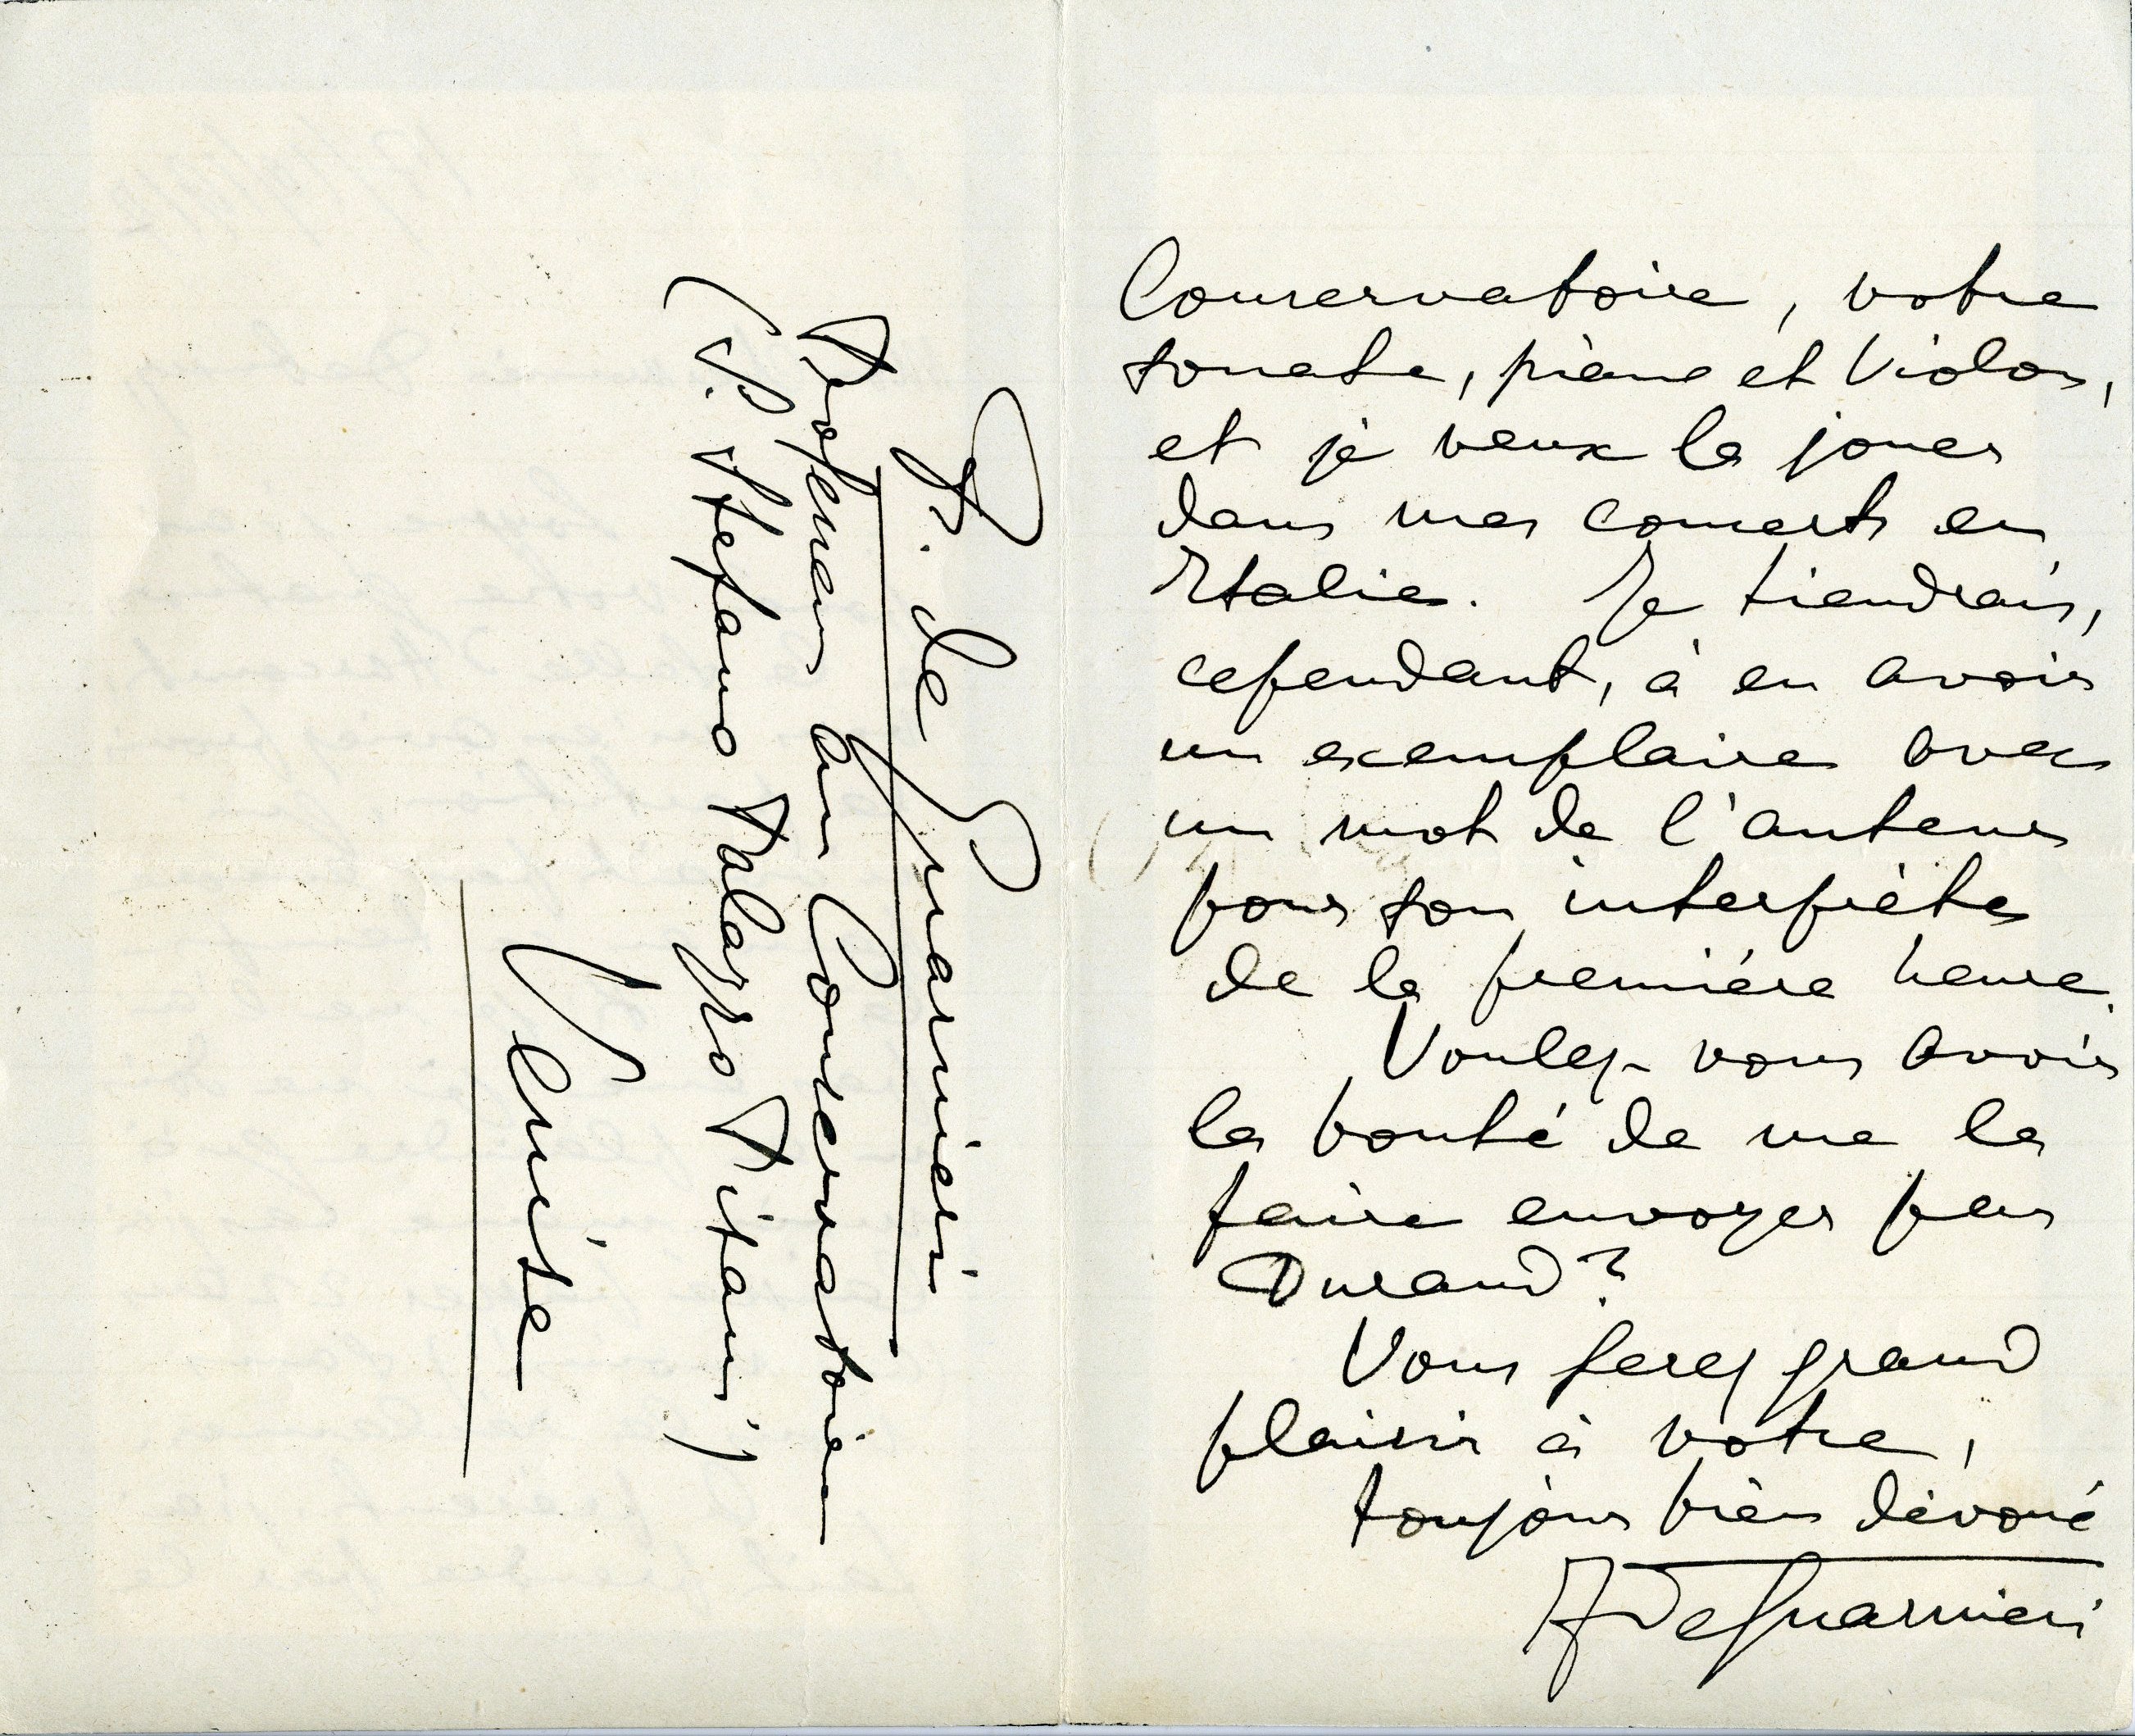 Conservatoire, votre
sonate, piano et Violon,
et je veux la jouer
dans mes concerts en
Italie. Je tiendrais,
cependant, à en avoir
un exemplaire avec
un mot de l'auteur
pour son interprète
de la première heure.
Voulez-vous avoir
la bonté de me la
faire envoyer par
Durand?
Vous ferez grand
plaisir à votre,
toujours bien dévoué
F de Guarnieri
F. de Guarnieri
Professeur au Conservatoire
(S. Stefano Palazzo Pisani)
Venise